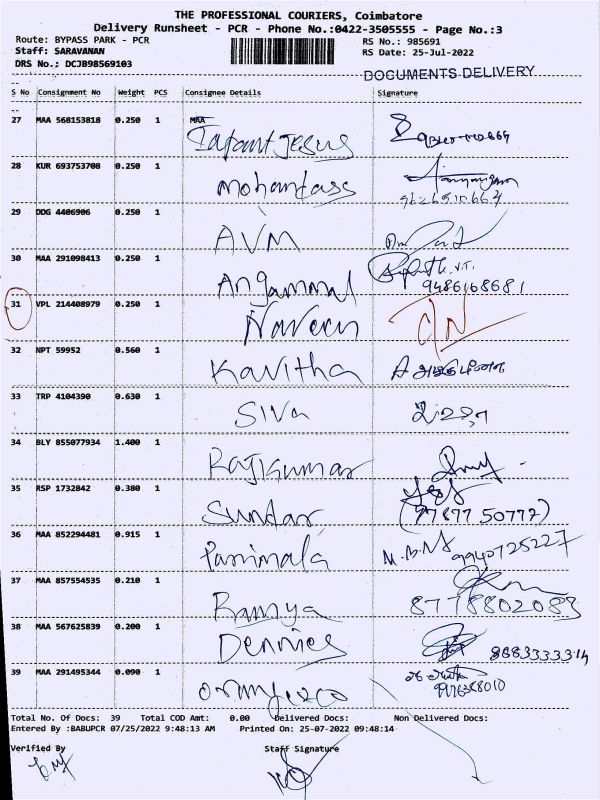 THE PROFESSIONAL COURIERS, Coimbatore
Delivery Runsheet - PCR - Phone No.:0422-3505555 - Page No.:3
Route: BYPASS PARK - PCR
RS No.: 985691
Staff: SARAVANAN
RS Date: 25-Jul-2022
DRS No.: DCJB98569103
DOCUMENTS DELIVERY
S No Consignment No Weight PCS Consignee Details Signature
27 MAA 568153818 0.250 1 MAA
Infant Jesus
28 KUR 693753708 0.250 1
Mohandass
9626510664
29 DDG 4406906 0.250 1
AVM
30 MAA 291098413 0.250 1
Angammal
9486168681
31 VPL 214408979 0.250 1
Naveen
32 NPT 59952 0.560 1
Kavitha
33 TRP 4104390 0.630 1
Siva
34 BLY 855077934 1.400 1
Rajkumar
35 RSP 1732842 0.380 1
Sundar (97877 50777)
36 MAA 852294481 0.915 1
Parimala 9940725227
37 MAA 857554535 0.210 1
Ramya 8778802083
38 MAA 567625839 0.200 1
Dennies 8883333314
39 MAA 291495344 0.090 1
Total No. Of Docs: 39 Total COD Amt: 0.00 Delivered Docs: Non Delivered Docs:
Entered By :BABUPCR 07/25/2022 9:48:13 AM Printed On: 25-07-2022 09:48:14
Verified By Staff Signature